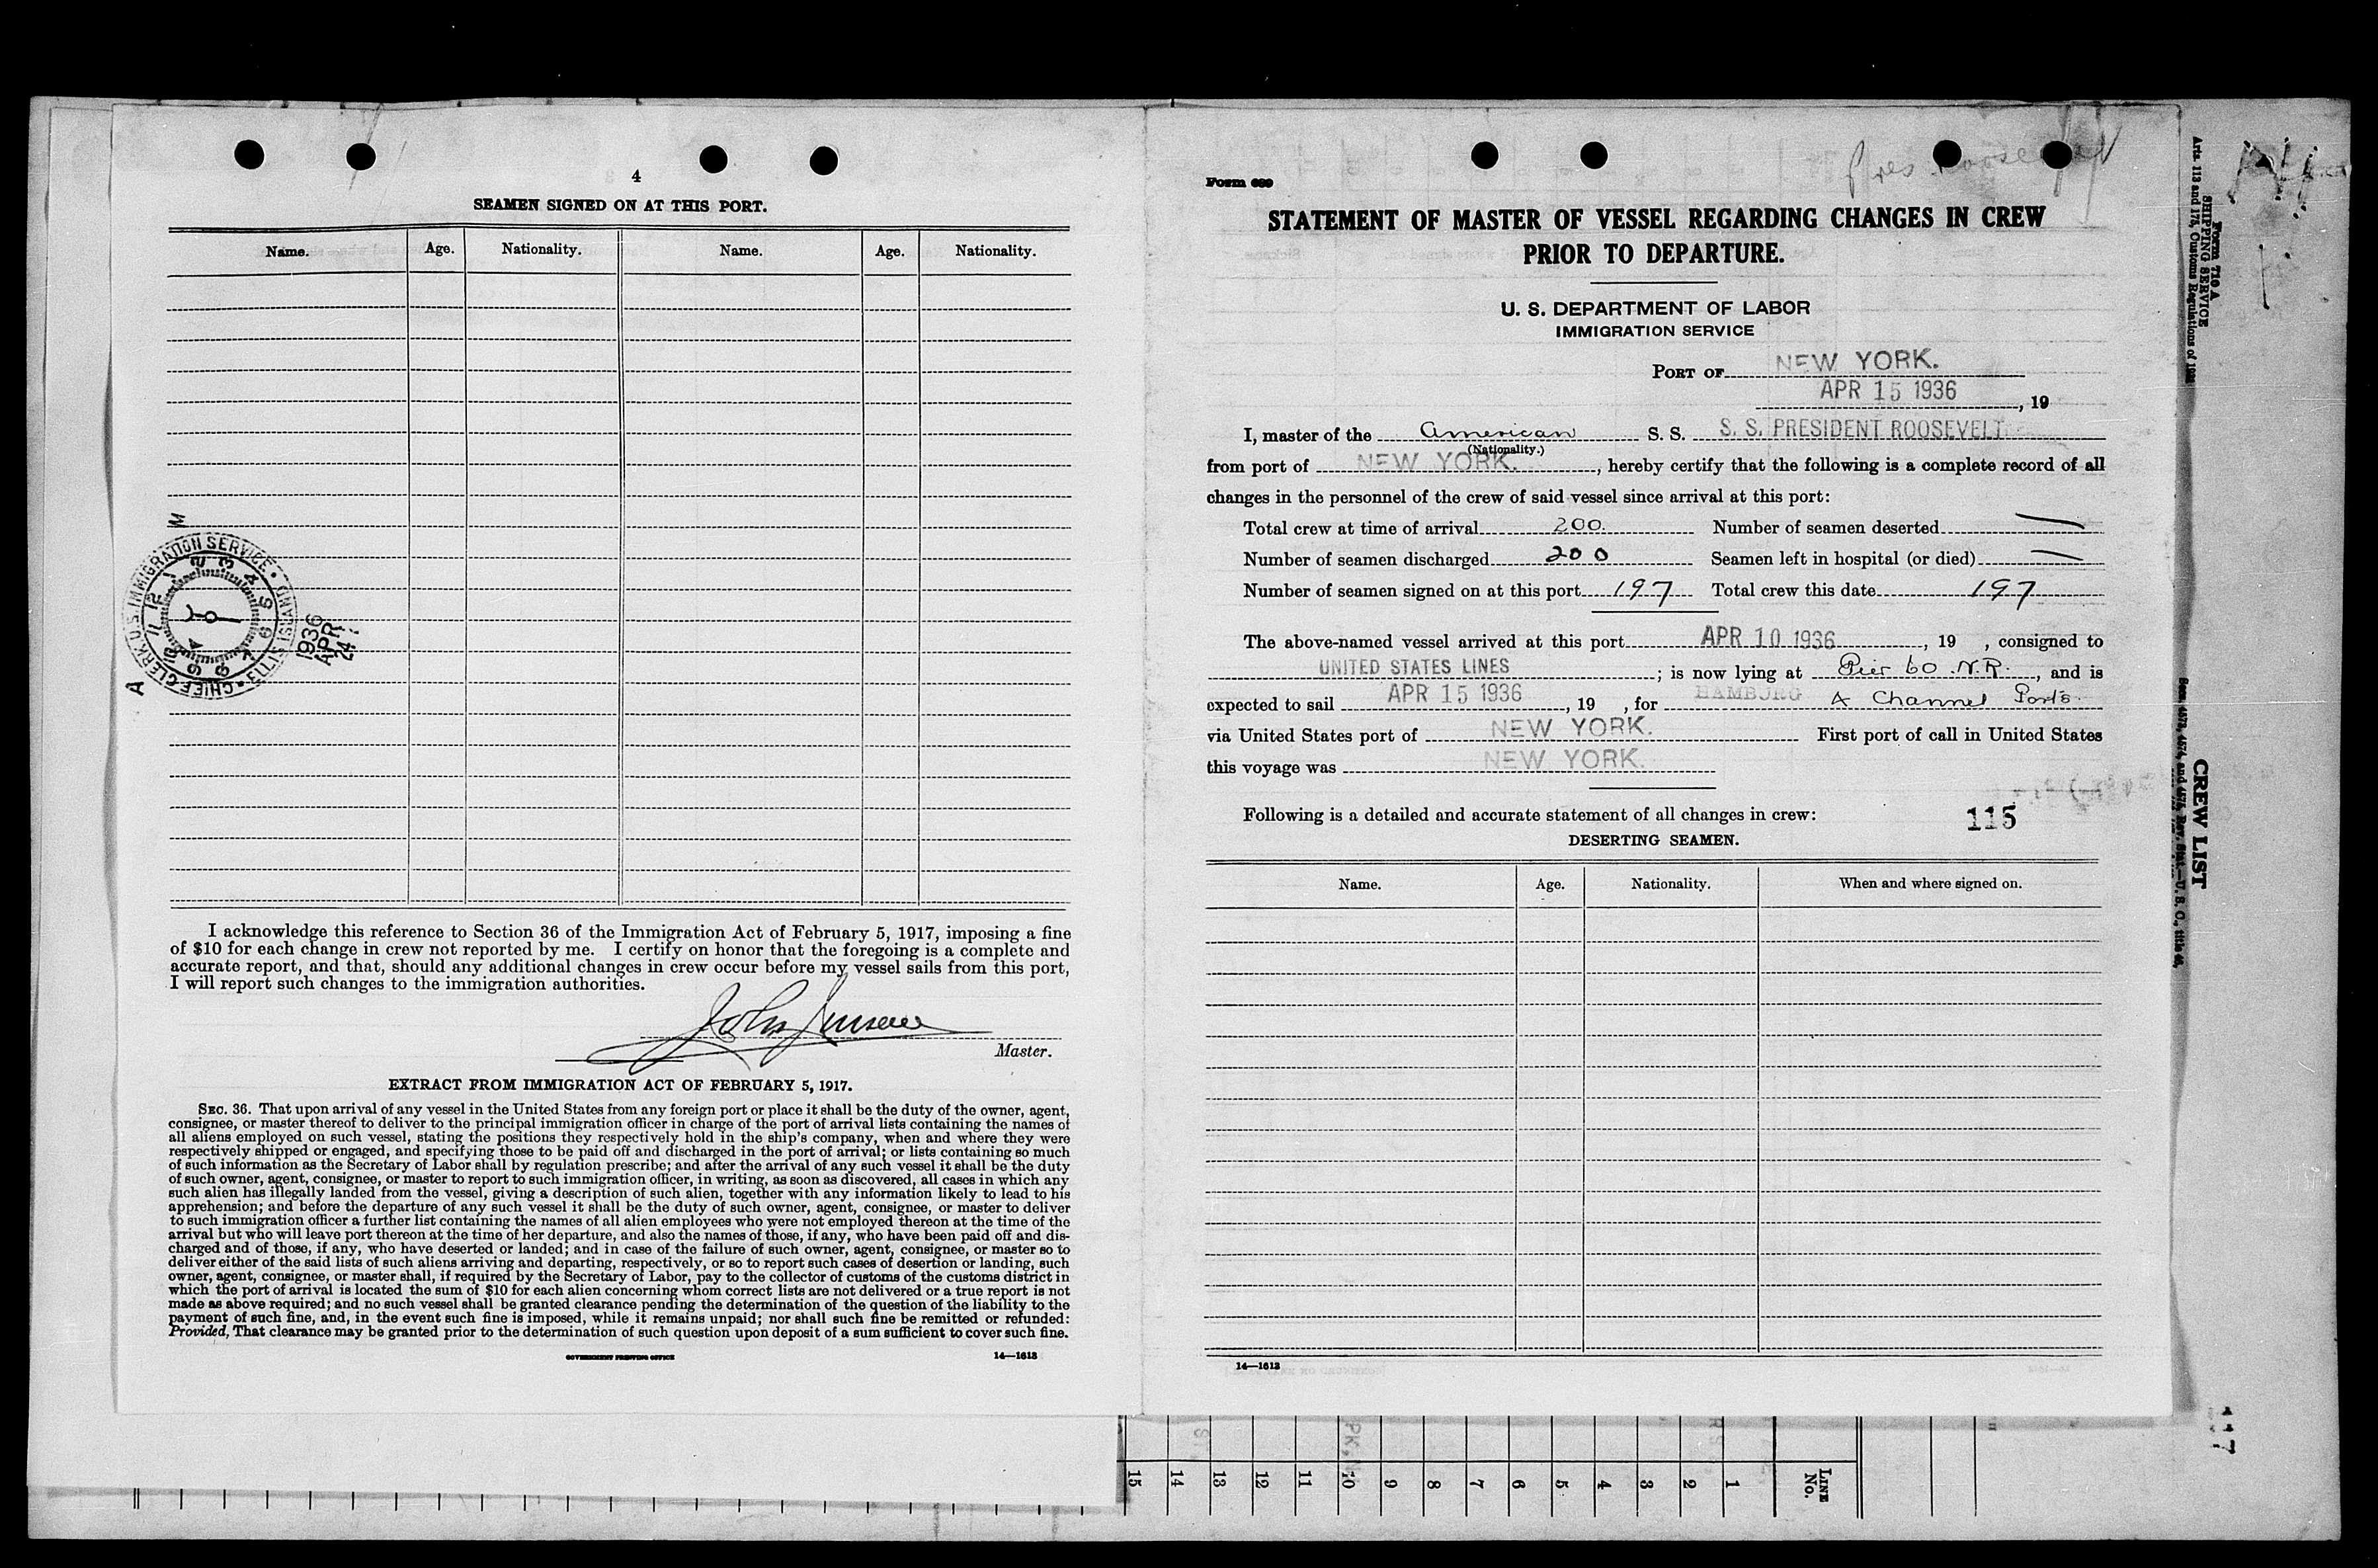 4
SEAMEN SIGNED ON AT THIS PORT.
Name. Age. Nationality. Name. Age. Nationality.
M
U.S. IMMIGRATION SERVICE • ELLIS ISLAND • CHIEF CLERK
12 1 2 3 4 5 6 7 8 9 10 11
1936
APR
24
A
I acknowledge this reference to Section 36 of the Immigration Act of February 5, 1917, imposing a fine
of $10 for each change in crew not reported by me. I certify on honor that the foregoing is a complete and
accurate report, and that, should any additional changes in crew occur before my vessel sails from this port,
I will report such changes to the immigration authorities.
John Jensen
Master.
EXTRACT FROM IMMIGRATION ACT OF FEBRUARY 5, 1917.
SEC. 36. That upon arrival of any vessel in the United States from any foreign port or place it shall be the duty of the owner, agent,
consignee, or master thereof to deliver to the principal immigration officer in charge of the port of arrival lists containing the names of
all aliens employed on such vessel, stating the positions they respectively hold in the ship's company, when and where they were
respectively shipped or engaged, and specifying those to be paid off and discharged in the port of arrival; or lists containing so much
of such information as the Secretary of Labor shall by regulation prescribe; and after the arrival of any such vessel it shall be the duty
of such owner, agent, consignee, or master to report to such immigration officer, in writing, as soon as discovered, all cases in which any
such alien has illegally landed from the vessel, giving a description of such alien, together with any information likely to lead to his
apprehension; and before the departure of any such vessel it shall be the duty of such owner, agent, consignee, or master to deliver
to such immigration officer a further list containing the names of all alien employees who were not employed thereon at the time of the
arrival but who will leave port thereon at the time of her departure, and also the names of those, if any, who have been paid off and dis-
charged and of those, if any, who have deserted or landed; and in case of the failure of such owner, agent, consignee, or master so to
deliver either of the said lists of such aliens arriving and departing, respectively, or so to report such cases of desertion or landing, such
owner, agent, consignee, or master shall, if required by the Secretary of Labor, pay to the collector of customs of the customs district in
which the port of arrival is located the sum of $10 for each alien concerning whom correct lists are not delivered or a true report is not
made as above required; and no such vessel shall be granted clearance pending the determination of the question of the liability to the
payment of such fine, and, in the event such fine is imposed, while it remains unpaid; nor shall such fine be remitted or refunded:
Provided, That clearance may be granted prior to the determination of such question upon deposit of a sum sufficient to cover such fine.
GOVERNMENT PRINTING OFFICE 14—1613
Pres Roosevelt
Form 689
STATEMENT OF MASTER OF VESSEL REGARDING CHANGES IN CREW
PRIOR TO DEPARTURE.
U. S. DEPARTMENT OF LABOR
IMMIGRATION SERVICE
PORT OF NEW YORK.
APR 15 1936, 19
I, master of the American S. S. S. S. PRESIDENT ROOSEVELT
(Nationality.)
from port of NEW YORK., hereby certify that the following is a complete record of all
changes in the personnel of the crew of said vessel since arrival at this port:
Total crew at time of arrival 200. Number of seamen deserted —
Number of seamen discharged 200 Seamen left in hospital (or died) —
Number of seamen signed on at this port 197 Total crew this date 197
The above-named vessel arrived at this port APR 10 1936, 19 , consigned to
UNITED STATES LINES; is now lying at Pier 60 N.R., and is
expected to sail APR 15 1936, 19 , for HAMBURG & Channel Ports.
via United States port of NEW YORK. First port of call in United States
this voyage was NEW YORK.
Following is a detailed and accurate statement of all changes in crew: 115
DESERTING SEAMEN.
Name. Age. Nationality. When and where signed on.
14—1613
Form 710 A
SHIPPING SERVICE
Arts. 113 and 175, Customs Regulations of
CREW LIST
15 14 13 12 11 10 9 8 7 6 5 4 3 2 1 LINE No.